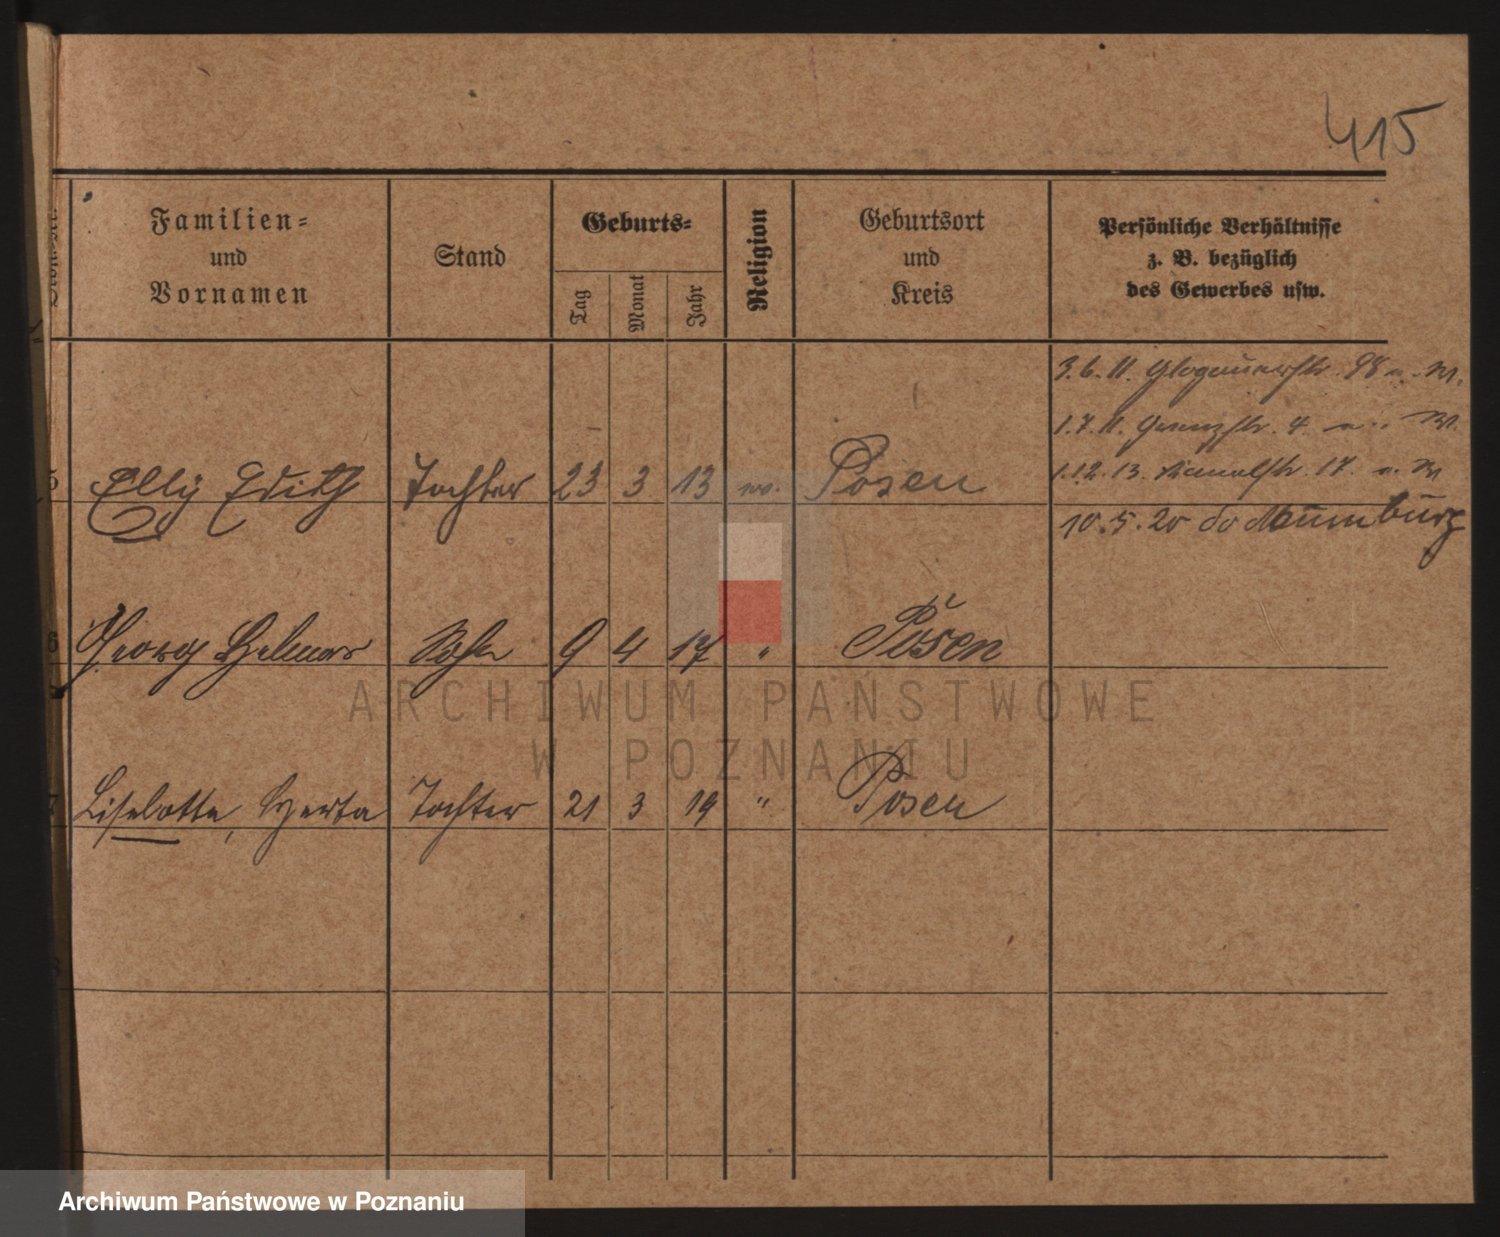 415
Familien=
und
Vornamen
Stand
Geburts=
Tag
Monat
Jahr
Religion
Geburtsort
und
Kreis
Persönliche Verhältnisse
z. B. bezüglich
des Gewerbes usw.
3.6.11. Glogauerstr. 98
1.7.11. Grenzstr. 4.
1.12.13. Kanalstr. 17.
5 Elly Edith Tochter 23 3 13 Posen
10.5.20 Naumburg
6 Georg Helmar Sohn 9 4 17 " Posen
7 Liselotte, Herta Tochter 21 3 19 " Posen
8
ARCHIWUM PAŃSTWOWE
W POZNANIU
Archiwum Państwowe w Poznaniu